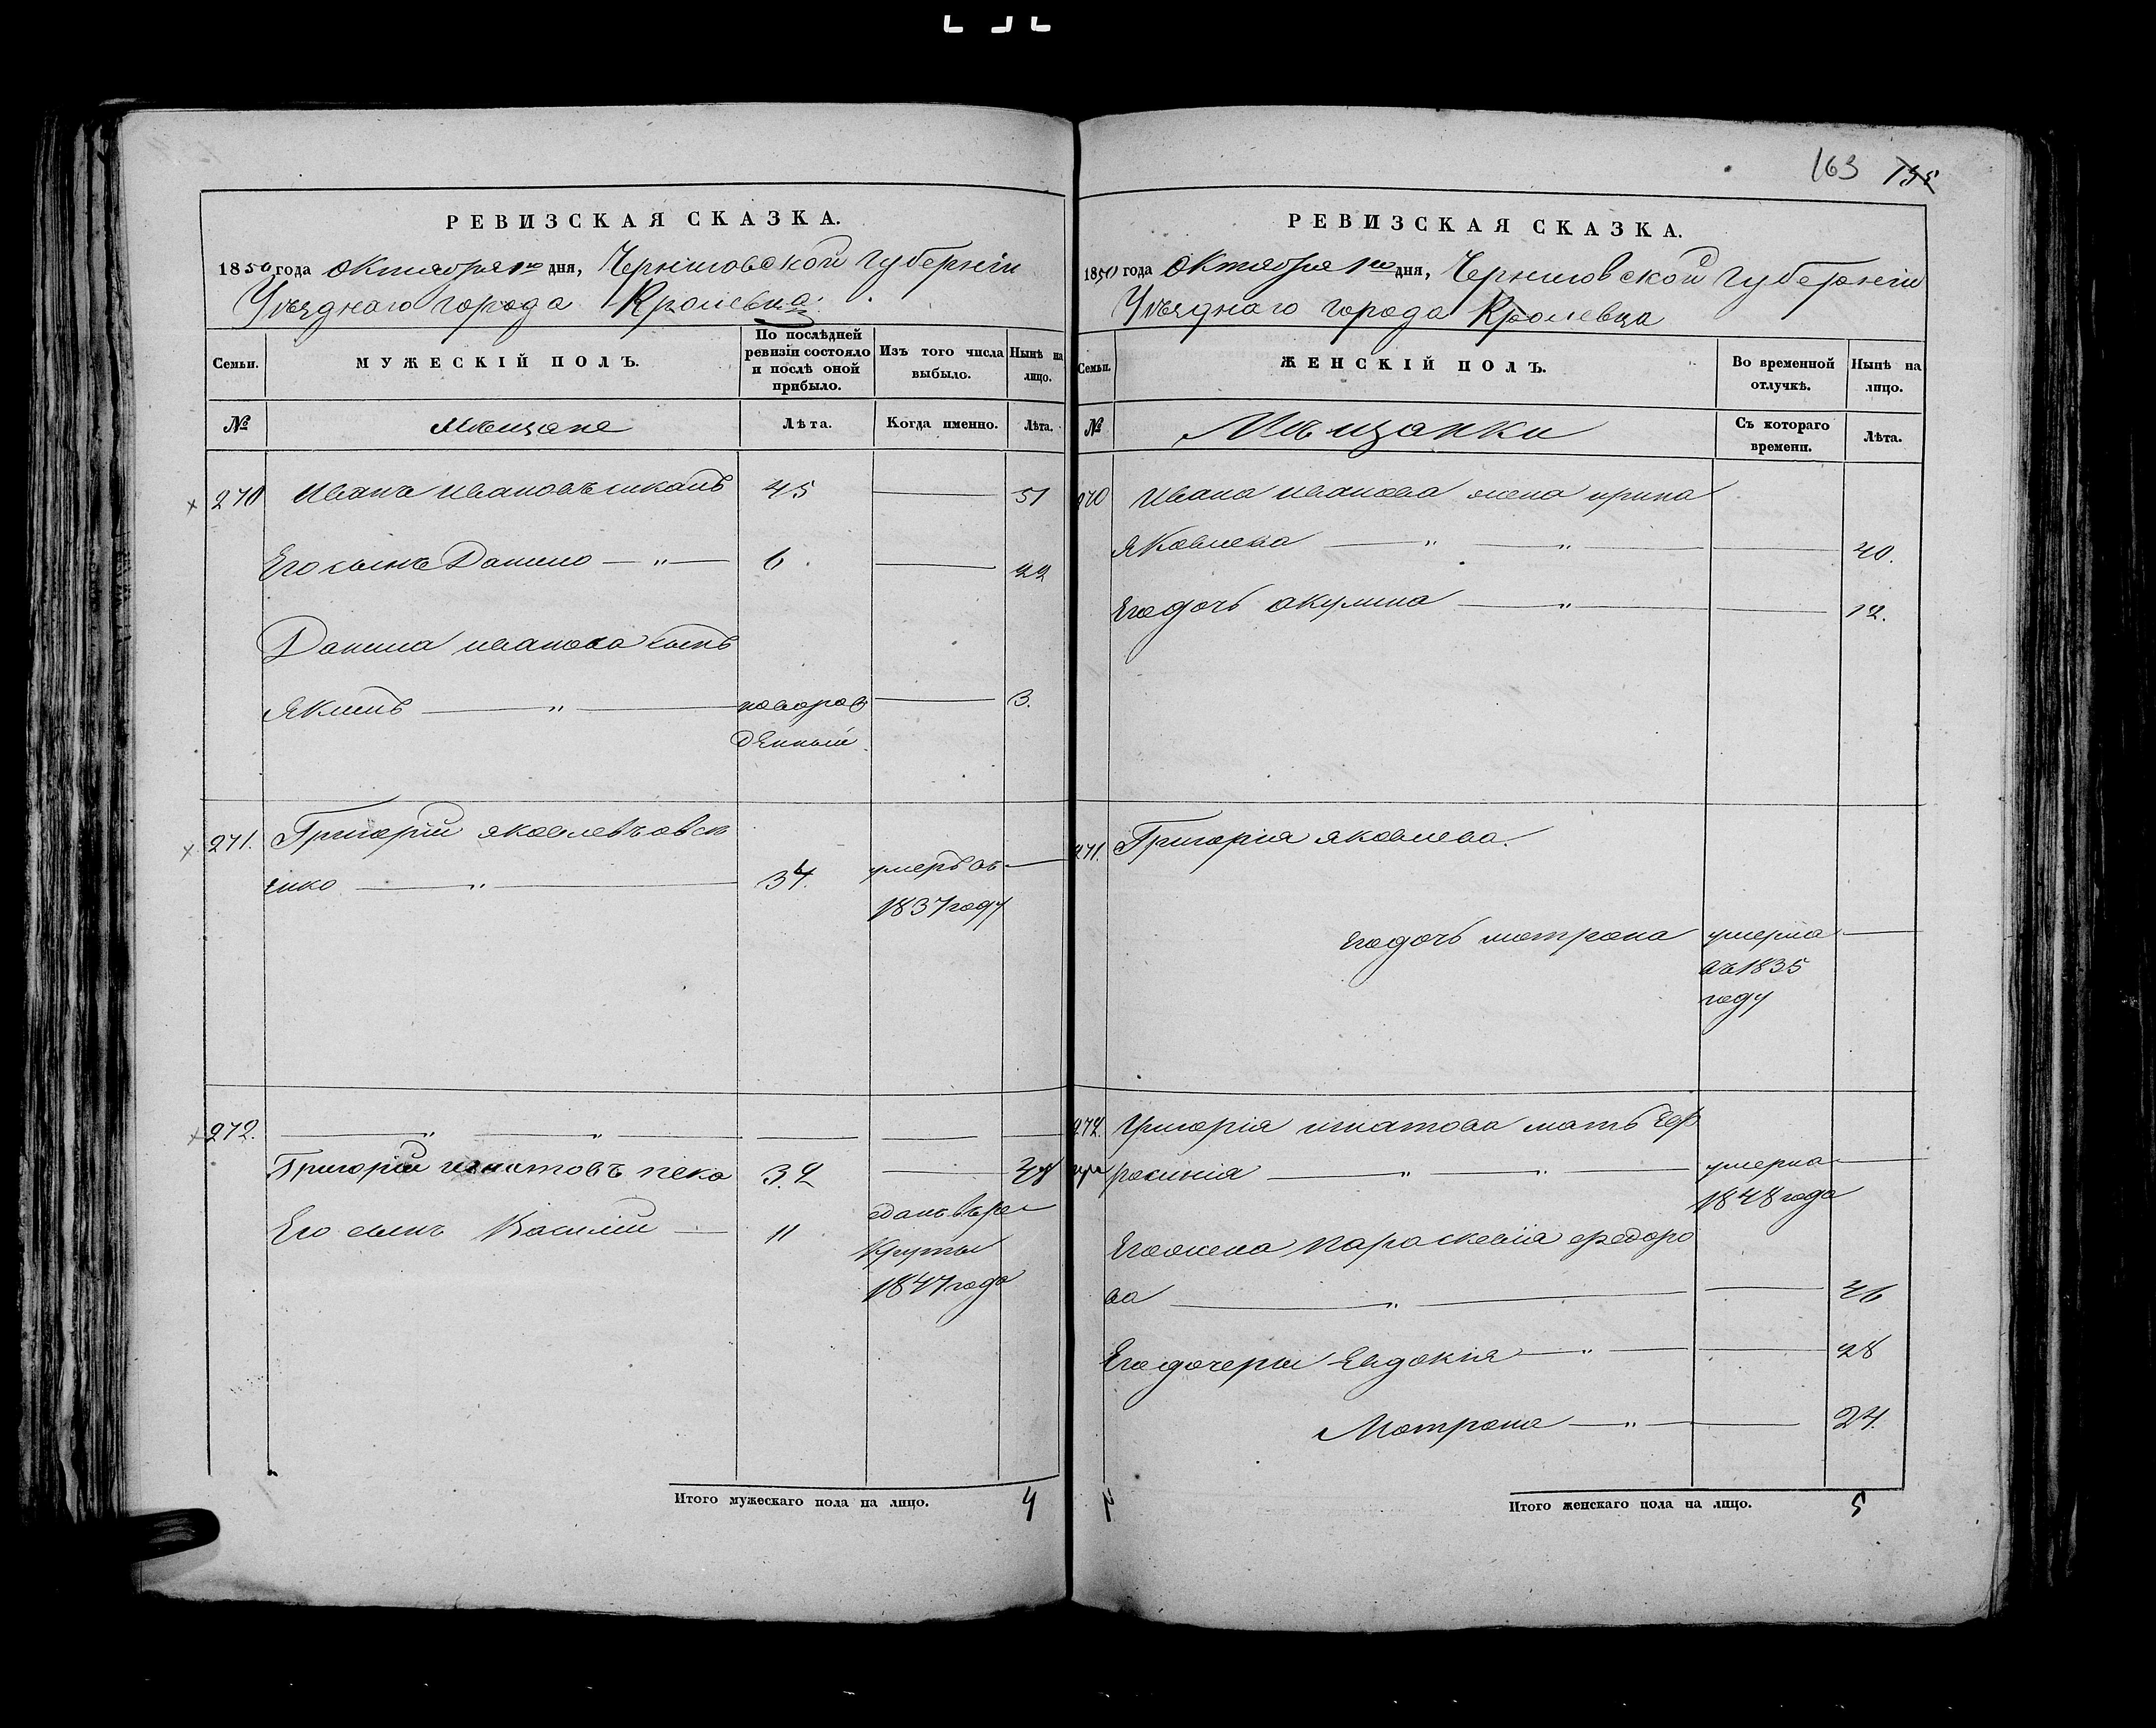 163 132
РЕВИЗСКАЯ СКАЗКА.
1850 года октября 1го дня, Черниговской губернiи
Уѣзднаго города Кролевца
Семьи.
МУЖЕСКІЙ ПОЛЪ.
По послѣдней ревизіи состояло и послѣ оной прибыло.
Изъ того числа выбыло.
Нынѣ на лицо.
№
мѣщане
Лѣта.
Когда именно.
Лѣта.
270 Иванъ Ивановъ 45 51
Его сынъ Данило — „ — 6 22
Данила иванова сынъ
Якимъ — „ — новорож 3.
денный
271. Григорій яковлевъ
енко — „ — 34. умеръ въ —
1837 году
272. — „ — „ —
Григорій игнатовъ пека 32 48
Его сынъ Василій — 11 зданъ въ ре
круты
1847 года
Итого мужескаго пола на лицо. 4
РЕВИЗСКАЯ СКАЗКА.
1850 года октября 1го дня, Черниговской губернiи
Уѣзднаго города Кролевца
Семьи.
ЖЕНСКІЙ ПОЛЪ.
Во временной отлучкѣ.
Нынѣ на лицо.
№
Мѣщанки
Съ котораго времени.
Лѣта.
270 Ивана иванова жена ирина
яковлева — „ — „ — 40.
Его дочь акулина — „ — 12.
271. Григорія яковлева.
Его дочь мотрона умерла —
въ 1835
году
272. Григорія игнатова мать Еф
росинія — „ — „ — умерла —
1848 года
Его жена параскевія федоро
ва — „ — 46
Его дочери Евдокія — „ — 28
Мотрона — „ — 24.
Итого женскаго пола на лицо. 5